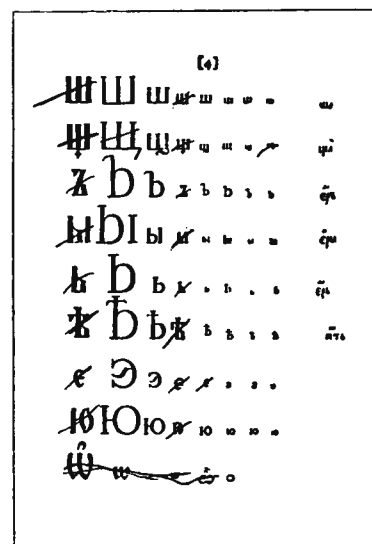 [4]
Ш Ш ш ш ш ш ш ш ша
Щ Щ щ щ щ щ щ щ
Ъ Ъ ъ ъ ъ ъ ъ ъ
Ы Ы ы ы ы ы ы ы
Ь Ь ь ь ь ь ь ь
Ѣ Ѣ ѣ ѣ ѣ ѣ ѣ ѣ ять
є Э э є є э э э
Ю Ю ю ю ю ю ю ю
Ѿ ѡ о